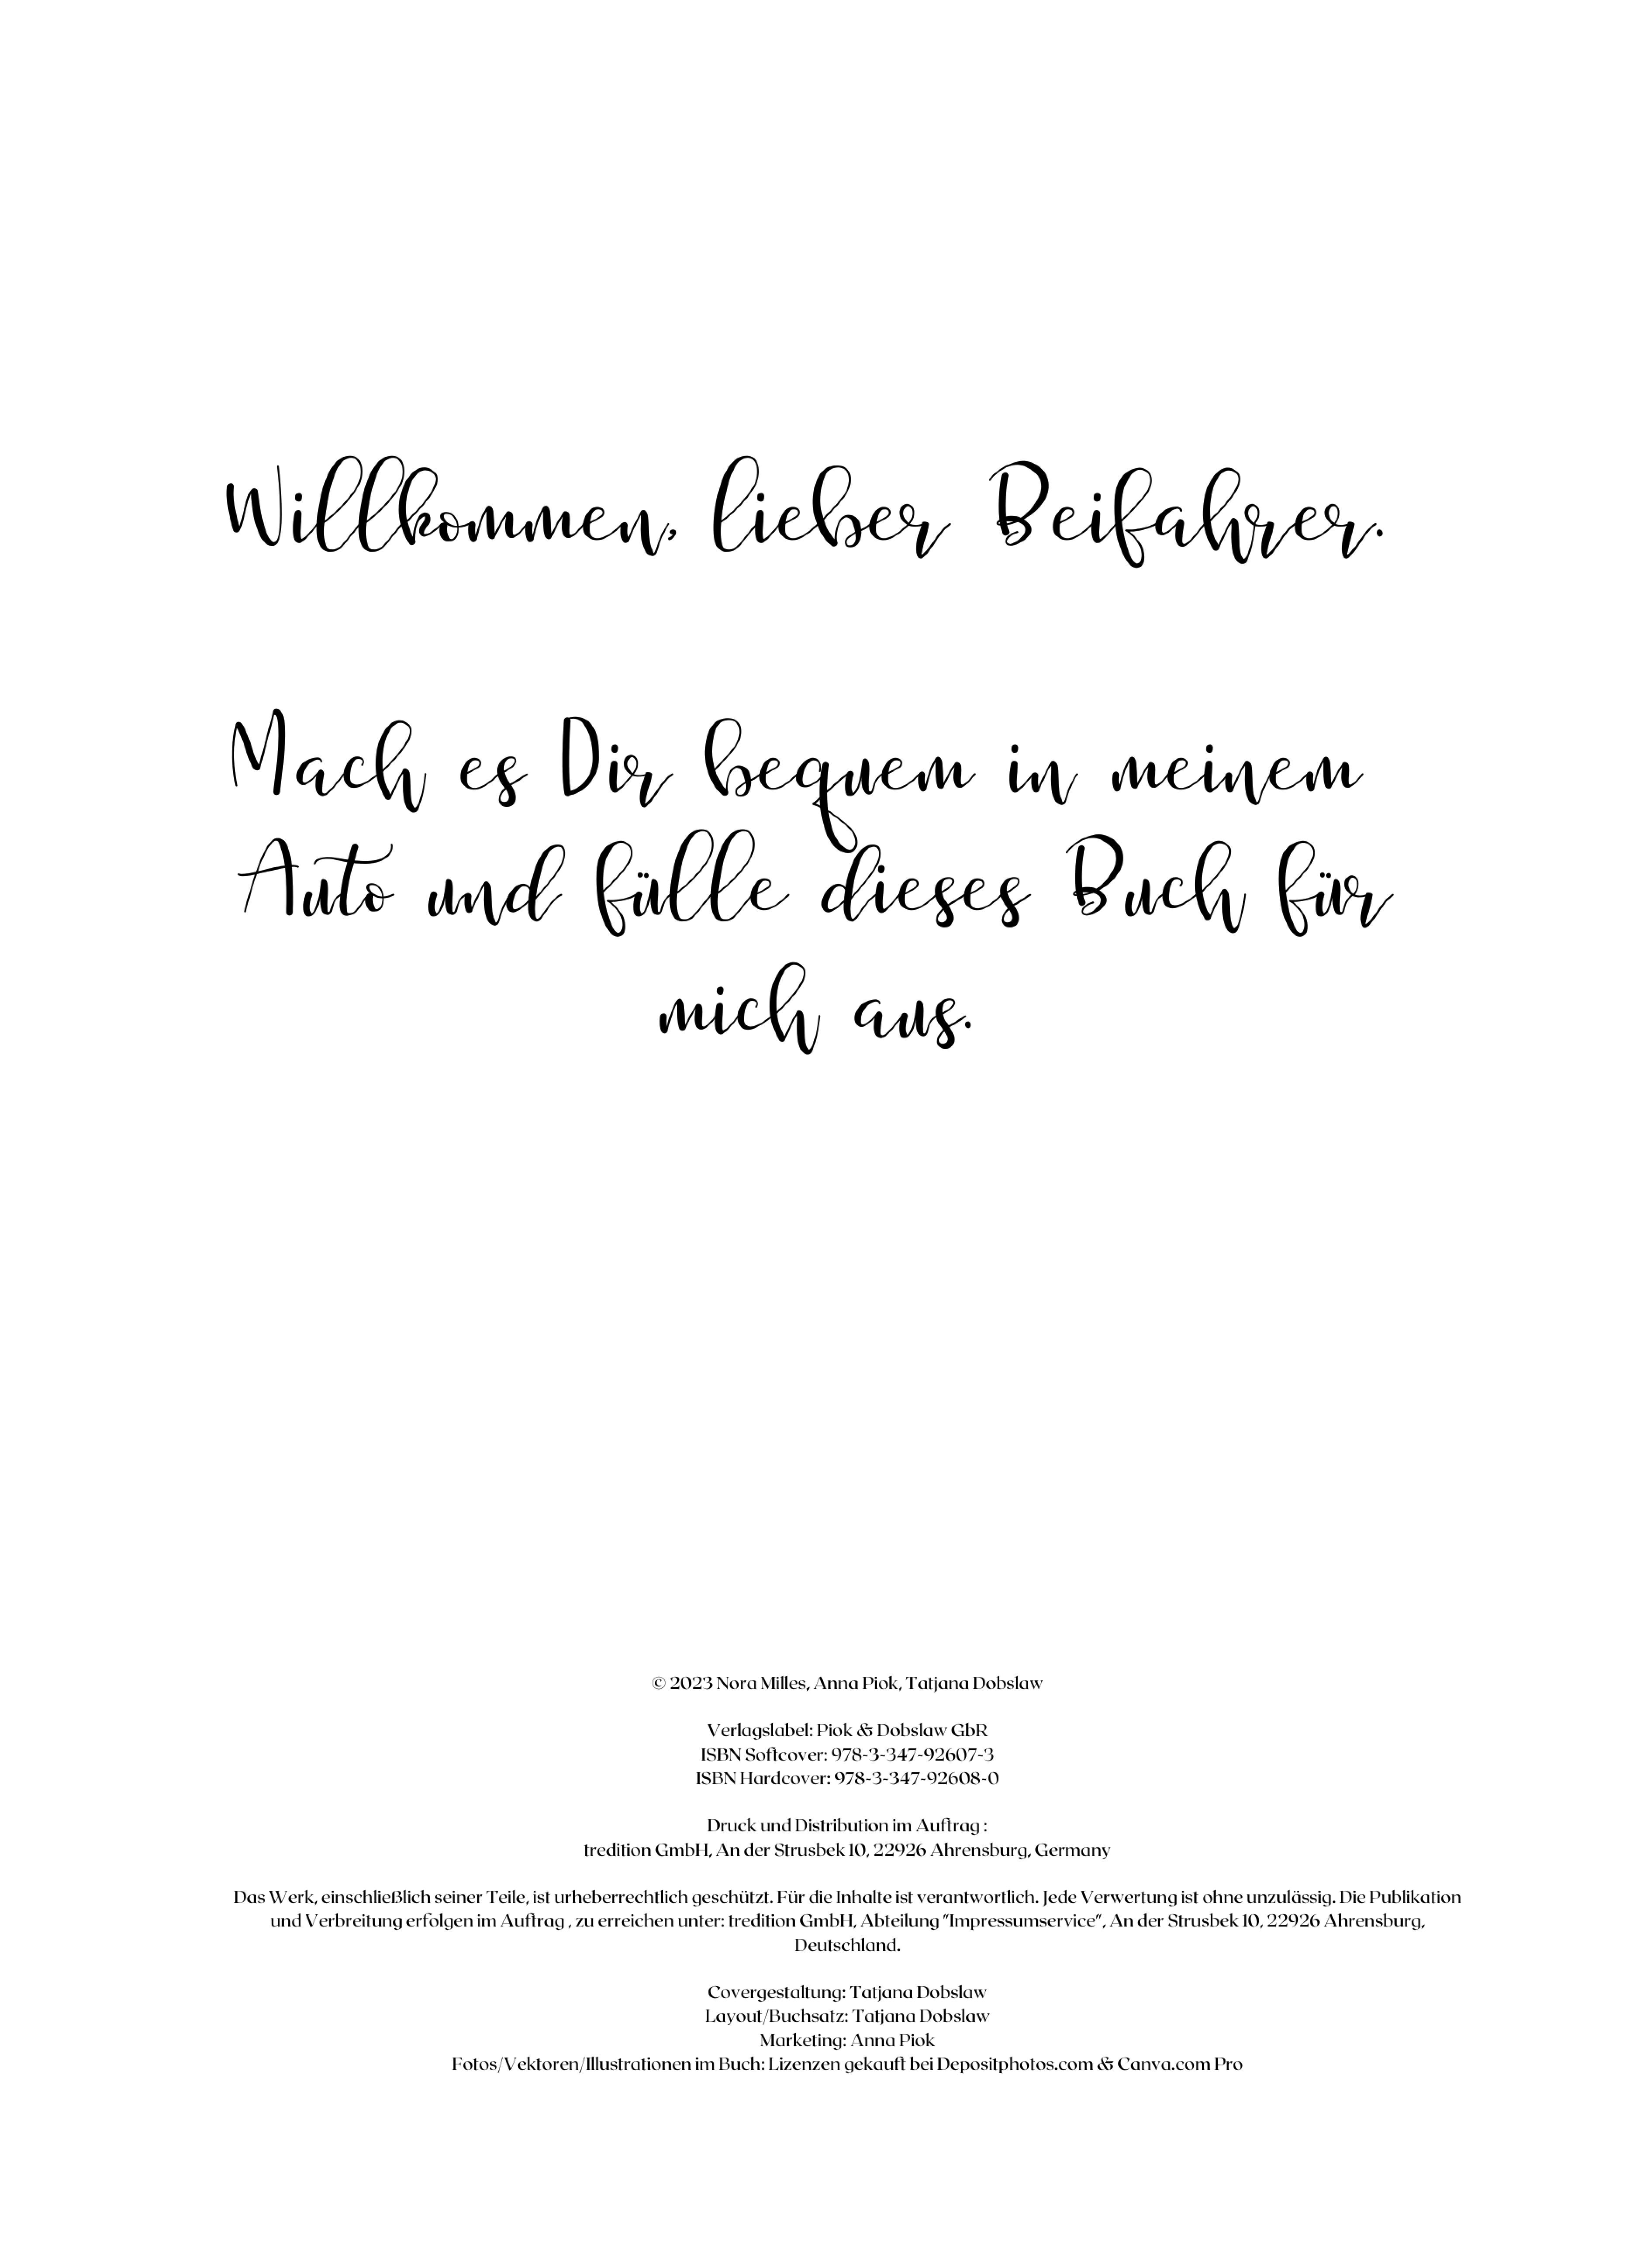 Willkommen, lieber Beifahrer.
Mach es Dir bequem in meinem
Auto und fülle dieses Buch für
mich aus.
© 2023 Nora Milles, Anna Piok, Tatjana Dobslaw
Verlagslabel: Piok & Dobslaw GbR
ISBN Softcover: 978-3-347-92607-3
ISBN Hardcover: 978-3-347-92608-0
Druck und Distribution im Auftrag :
tredition GmbH, An der Strusbek 10, 22926 Ahrensburg, Germany
Das Werk, einschließlich seiner Teile, ist urheberrechtlich geschützt. Für die Inhalte ist verantwortlich. Jede Verwertung ist ohne unzulässig. Die Publikation
und Verbreitung erfolgen im Auftrag , zu erreichen unter: tredition GmbH, Abteilung "Impressumservice", An der Strusbek 10, 22926 Ahrensburg,
Deutschland.
Covergestaltung: Tatjana Dobslaw
Layout/Buchsatz: Tatjana Dobslaw
Marketing: Anna Piok
Fotos/Vektoren/Illustrationen im Buch: Lizenzen gekauft bei Depositphotos.com & Canva.com Pro